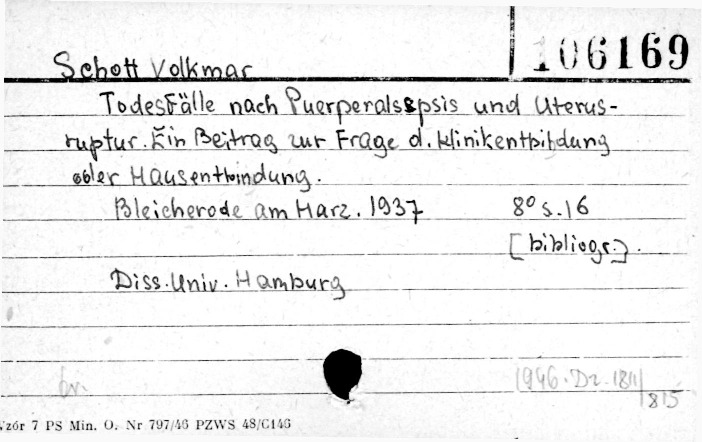 Schott Volkmar 106169
Todesfälle nach Puerperalsepsis und Uterus-
ruptur. Ein Beitrag zur Frage d. Klinikentbindung
oder Hausentbindung.
Bleicherode am Harz. 1937 8° s. 16
[bibliogr.].
Diss. Univ. Hamburg
1946. Dz. 1811/
815
Wzór 7 PS Min. O. Nr 797/46 PZWS 48/G146